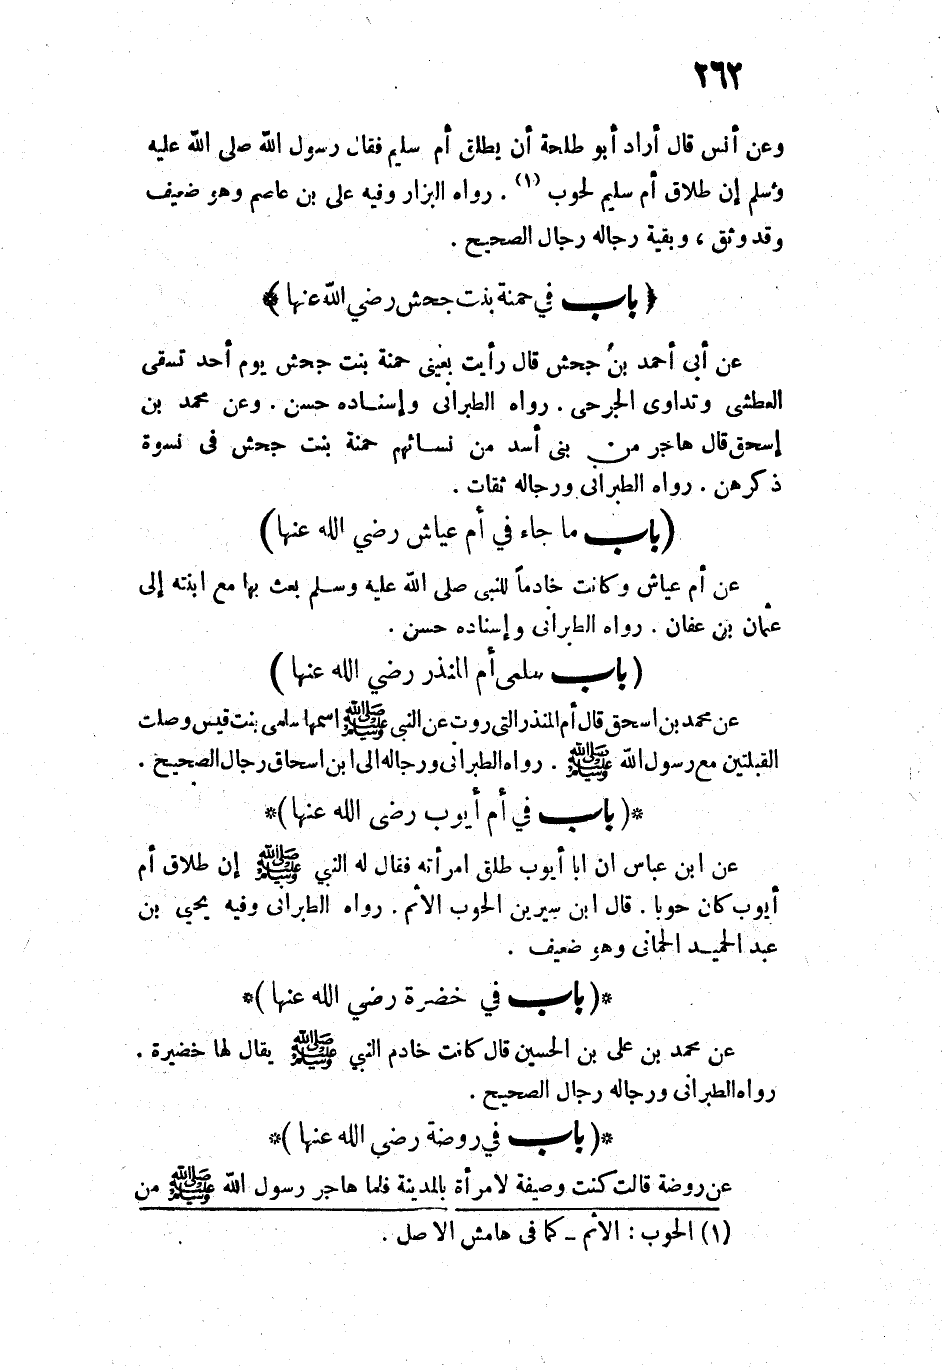 ٢٦٢
وعن أنس قال أراد أبو طلحة أن يطلق أم سليم فقال رسول الله صلى الله عليه
وسلم إن طلاق أم سليم لحوب (١) . رواه البزار وفيه على بن عاصم وهو ضعيف
وقد وثق ، وبقية رجاله رجال الصحيح .
﴿ باب في حمنة بنت جحش رضي الله عنها ﴾
عن أبى أحمد بن جحش قال رأيت بعينى حمنة بنت جحش يوم أحد تسقى
العطشى وتداوى الجرحى . رواه الطبرانى وإسناده حسن . وعن محمد بن
إسحق قال هاجر من بنى أسد من نسائهم حمنة بنت جحش فى نسوة
ذكرهن . رواه الطبرانى ورجاله ثقات .
(باب ما جاء في أم عياش رضي الله عنها)
عن أم عياش وكانت خادماً للنبى صلى الله عليه وسلم بعث بها مع ابنته إلى
عثمان بن عفان . رواه الطبرانى وإسناده حسن .
(باب سلمى أم المنذر رضي الله عنها )
عن محمد بن اسحق قال أم المنذر التى روت عن النبى ﷺ اسمها سلمى بنت قيس وصلت
القبلتين مع رسول الله ﷺ . رواه الطبرانى ورجاله الى ابن اسحاق رجال الصحيح .
*(باب في أم أيوب رضى الله عنها)*
عن ابن عباس ان ابا أيوب طلق امرأته فقال له النبي ﷺ إن طلاق أم
أيوب كان حوبا . قال ابن سيرين الحوب الأثم . رواه الطبرانى وفيه يحيى بن
عبد الحميد الحمانى وهو ضعيف .
*(باب في خضرة رضي الله عنها)*
عن محمد بن على بن الحسين قال كانت خادم النبي ﷺ يقال لها خضيرة .
رواه الطبرانى ورجاله رجال الصحيح .
*(باب في روضة رضي الله عنها)*
عن روضة قالت كنت وصيفة لامرأة بالمدينة فلما هاجر رسول الله ﷺ من
(١) الحوب : الأثم ـ كما فى هامش الاصل .